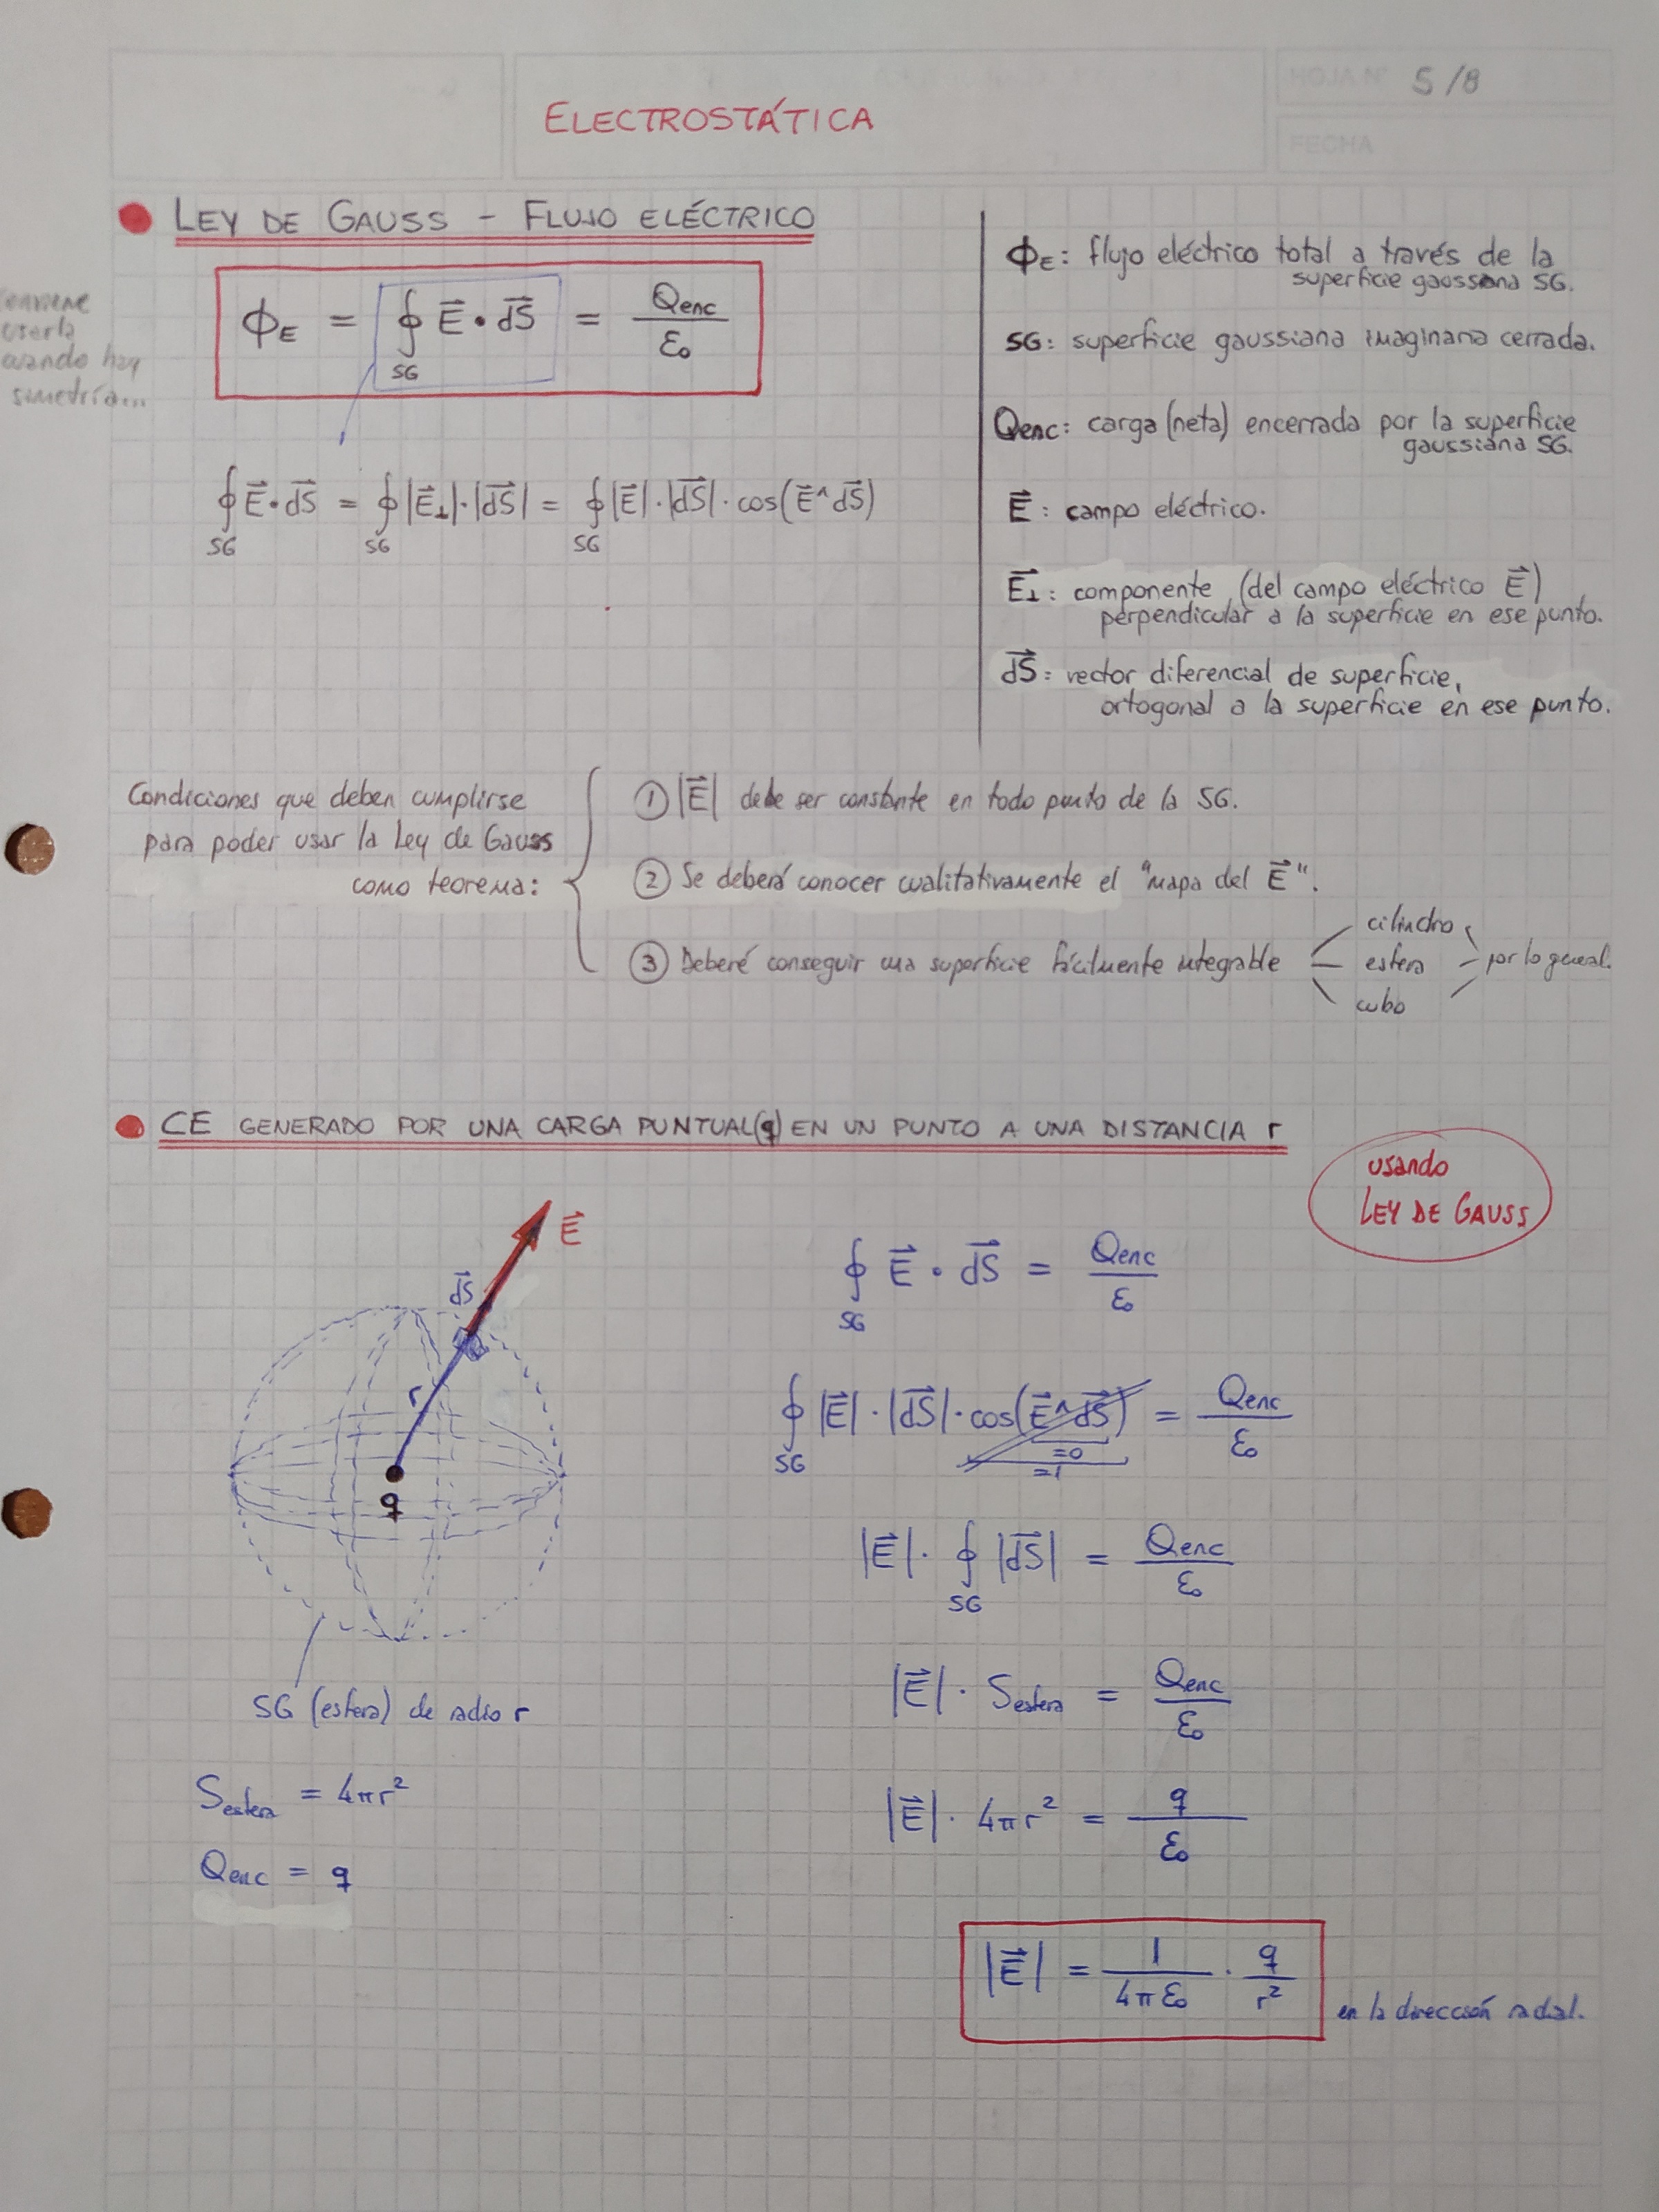 HOJA Nº 5/8
ELECTROSTÁTICA
FECHA
LEY DE GAUSS - FLUJO ELÉCTRICO
conviene
usarla
cuando hay
simetría...
ϕE = ∮SG E⃗ • dS⃗ = Qenc / ε₀
∮SG E⃗ • dS⃗ = ∮SG |E⃗⊥|·|dS⃗| = ∮SG |E⃗|·|dS⃗|·cos(E⃗^dS⃗)
ϕE: flujo eléctrico total a través de la
superficie gaussana SG.
SG: superficie gaussiana imaginaria cerrada.
Qenc: carga (neta) encerrada por la superficie
gaussiana SG.
E⃗: campo eléctrico.
E⃗⊥: componente (del campo eléctrico E⃗)
perpendicular a la superficie en ese punto.
dS⃗: vector diferencial de superficie,
ortogonal a la superficie en ese punto.
Condiciones que deben cumplirse
para poder usar la Ley de Gauss
como teorema:
① |E⃗| debe ser constante en todo punto de la SG.
② Se deberá conocer cualitativamente el "mapa del E⃗".
③ Deberé conseguir una superficie fácilmente integrable
cilindro
esfera
cubo
por lo general.
CE GENERADO POR UNA CARGA PUNTUAL (q) EN UN PUNTO A UNA DISTANCIA r
usando
LEY DE GAUSS
E⃗
dS⃗
r
q
SG (esfera) de radio r
Sesfera = 4πr²
Qenc = q
∮SG E⃗ • dS⃗ = Qenc / ε₀
∮SG |E⃗|·|dS⃗|·cos(E⃗^dS⃗) = Qenc / ε₀
=0
=1
|E⃗|·∮SG |dS⃗| = Qenc / ε₀
|E⃗|·Sesfera = Qenc / ε₀
|E⃗|·4πr² = q / ε₀
|E⃗| = 1 / 4πε₀ · q / r²
en la dirección radial.